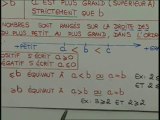 >b CI EST PLUS GRAND (SUPÉRIEUR À)
STRICTEMENT QUE b
NOMBRES SONT RANGÉS SUR LA DROITE DES
DU PLUS PETIT AU PLUS GRAND, DANS L'ORDR
+PETIT a<b +GRAND
POSITIF S'ÉCRIT a≥0
S'ÉCRIT a≤0
≤b ÉQUIVAUT À a<b OU a=b EX: 2≤
ET 2≤
≥b ÉQUIVAUT À a>b OU a=b
EX: 3≥2 ET 2≥2